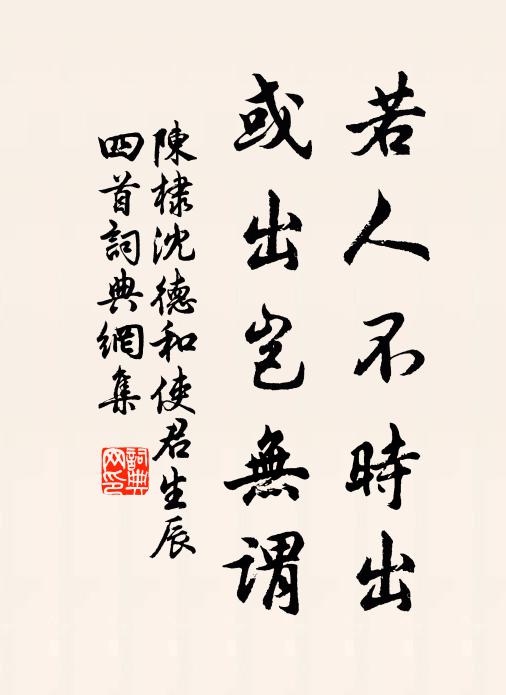 若人不時出
或出豈無謂
陳棣沈德和使君生辰
四首詞典網集
詞典
网印